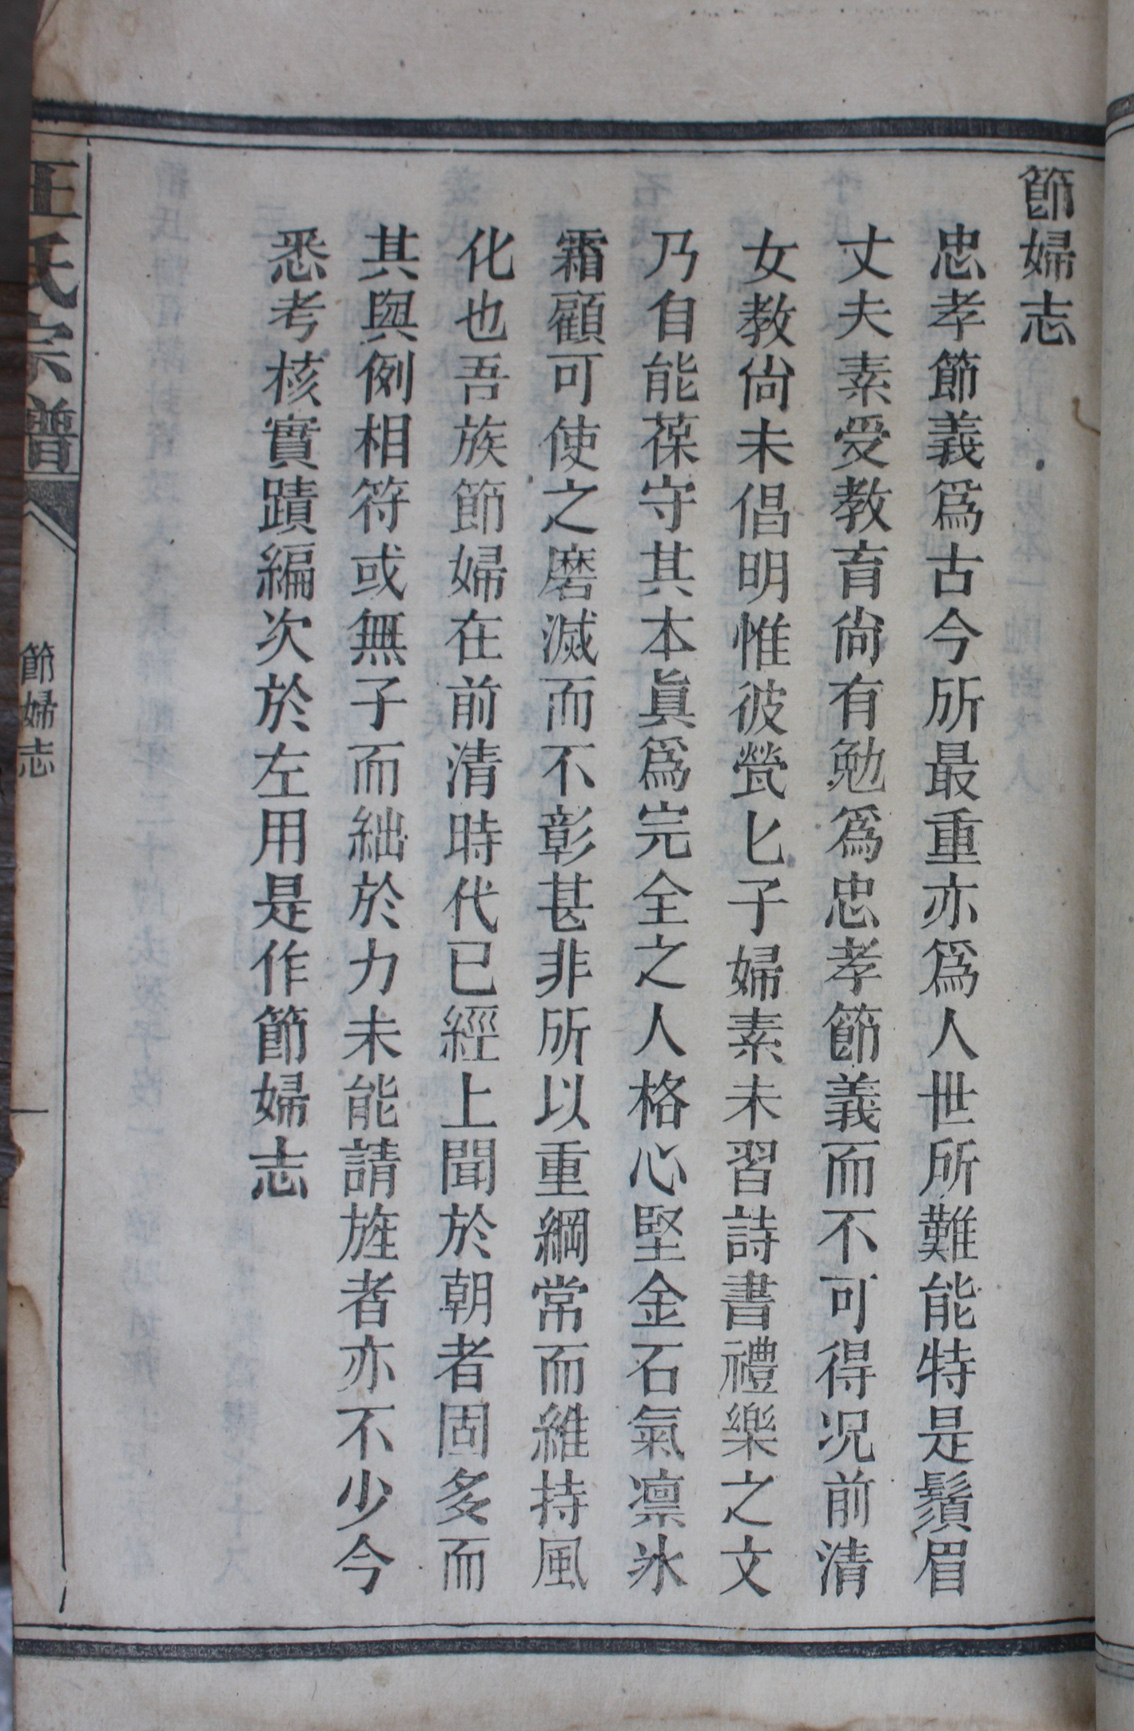 節婦志
忠孝節義爲古今所最重亦爲人世所難能特是鬚眉
丈夫素受教育尙有勉爲忠孝節義而不可得况前清
女教尙未倡明惟彼煢匕子婦素未習詩書禮樂之文
乃自能葆守其本眞爲完全之人格心堅金石氣凛氷
霜顧可使之磨滅而不彰甚非所以重綱常而維持風
化也吾族節婦在前清時代已經上聞於朝者固多而
其與例相符或無子而絀於力未能請旌者亦不少今
悉考核實蹟編次於左用是作節婦志
氏宗譜
節婦志
一